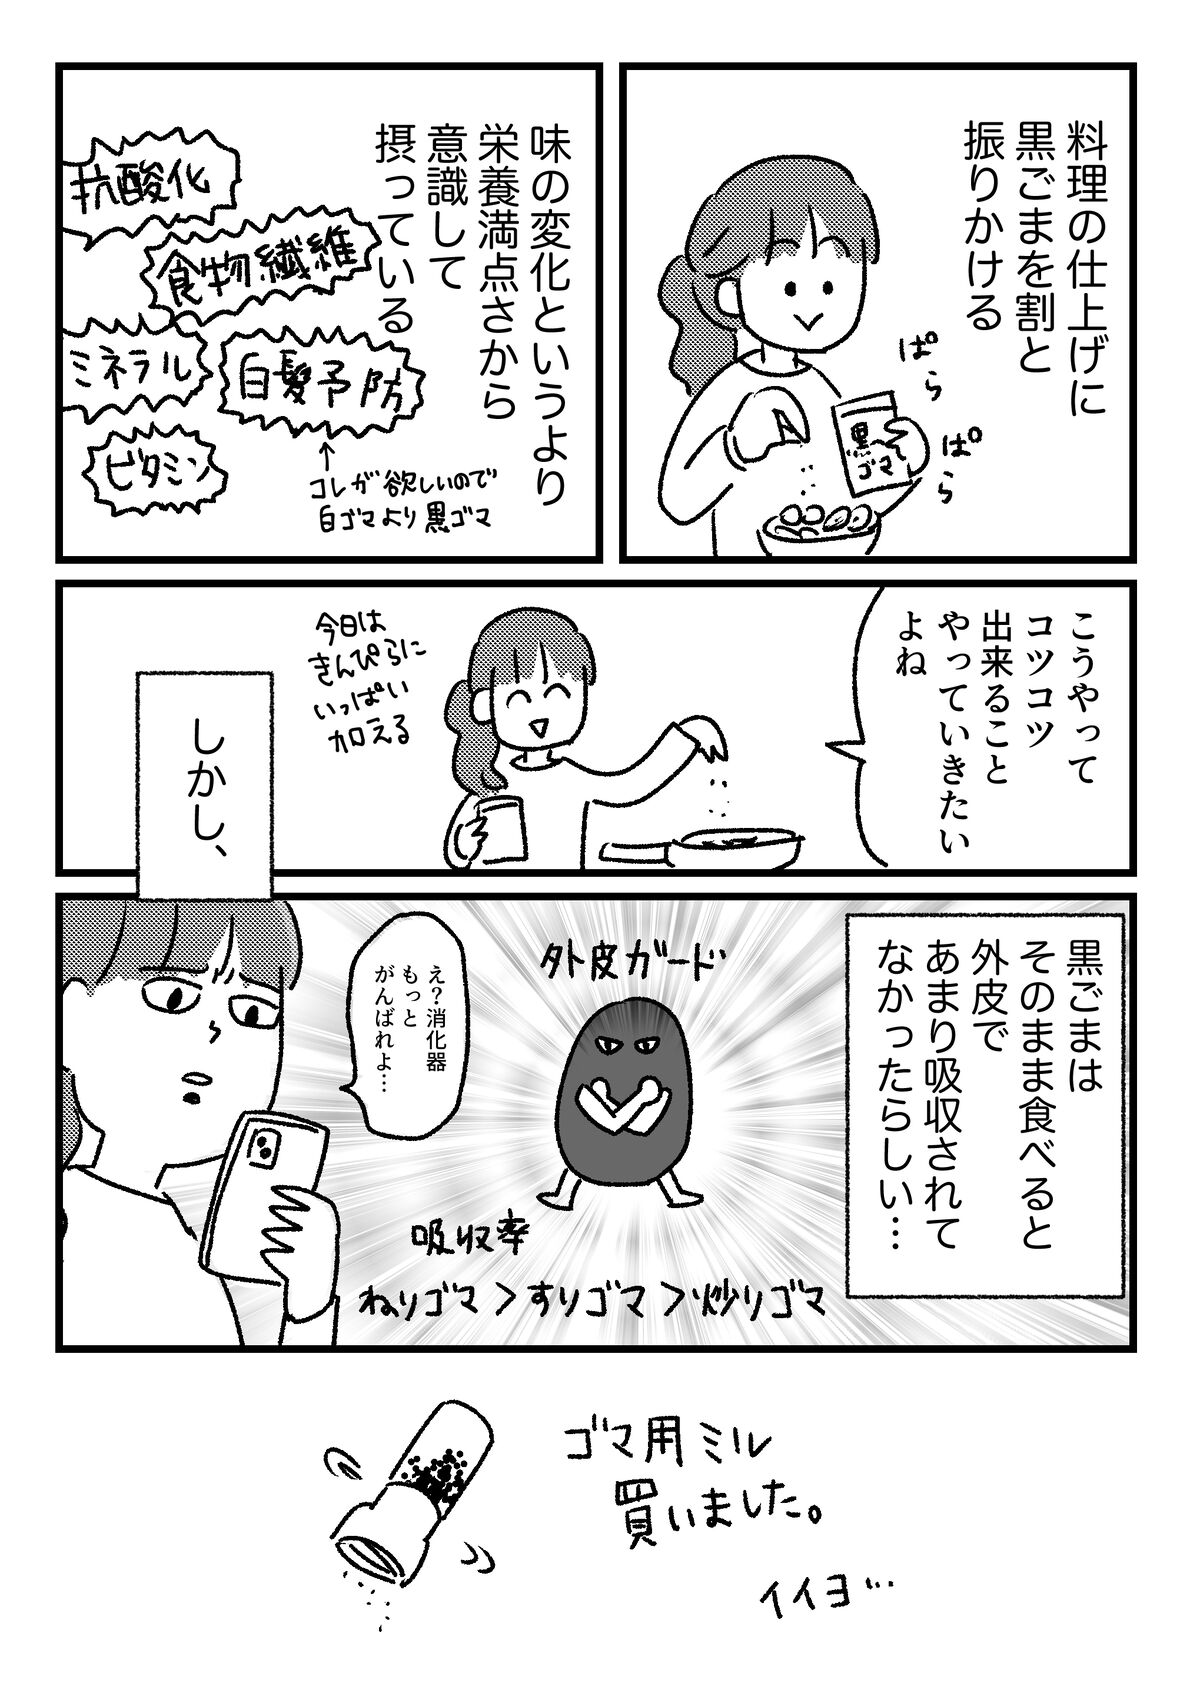 料理の仕上げに
黒ごまを割と
振りかける
ぱらぱら
黒
ゴマ
味の変化というより
栄養満点さから
意識して
摂っている
抗酸化
食物繊維
ミネラル
白髪予防
ビタミン
↑
コレが欲しいので
白ゴマより黒ゴマ
こうやって
コツコツ
出来ること
やっていきたい
よね
今日は
きんぴらに
いっぱい
加える
しかし、
黒ごまは
そのまま食べると
外皮で
あまり吸収されて
なかったらしい…
外皮ガード
え?消化器
もっと
がんばれよ…
吸収率
ねりゴマ>すりゴマ>炒りゴマ
ゴマ用ミル
買いました。
イイヨ…